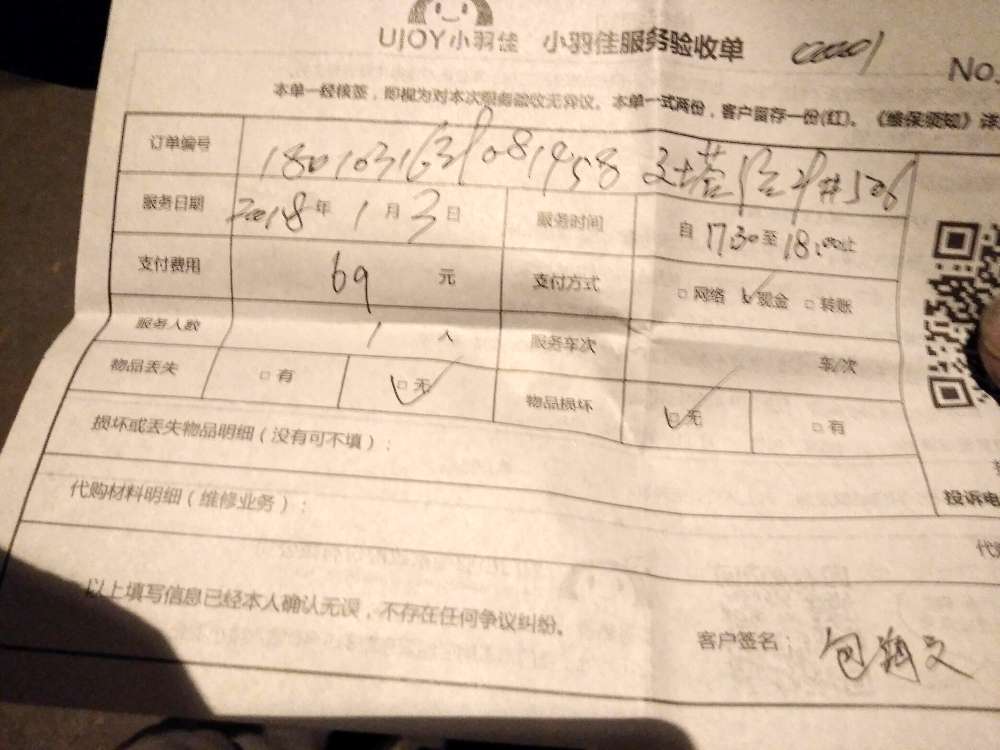 UJOY小羽佳 小羽佳服务验收单 00001 No.
本单一经核签，即视为对本次服务验收无异议。本单一式两份，客户留存一份(红)。《维保须知》详
订单编号
服务日期 2018年1月3日 服务时间 自17:30至18:00止
支付费用 69元 支付方式 □网络 □现金 □转账
服务人数 1人 服务车次 车/次
物品丢失 □有 □无 物品损坏 □无 □有
损坏或丢失物品明细（没有可不填）：
代购材料明细（维修业务）：
投诉电
代
以上填写信息已经本人确认无误，不存在任何争议纠纷。
客户签名：